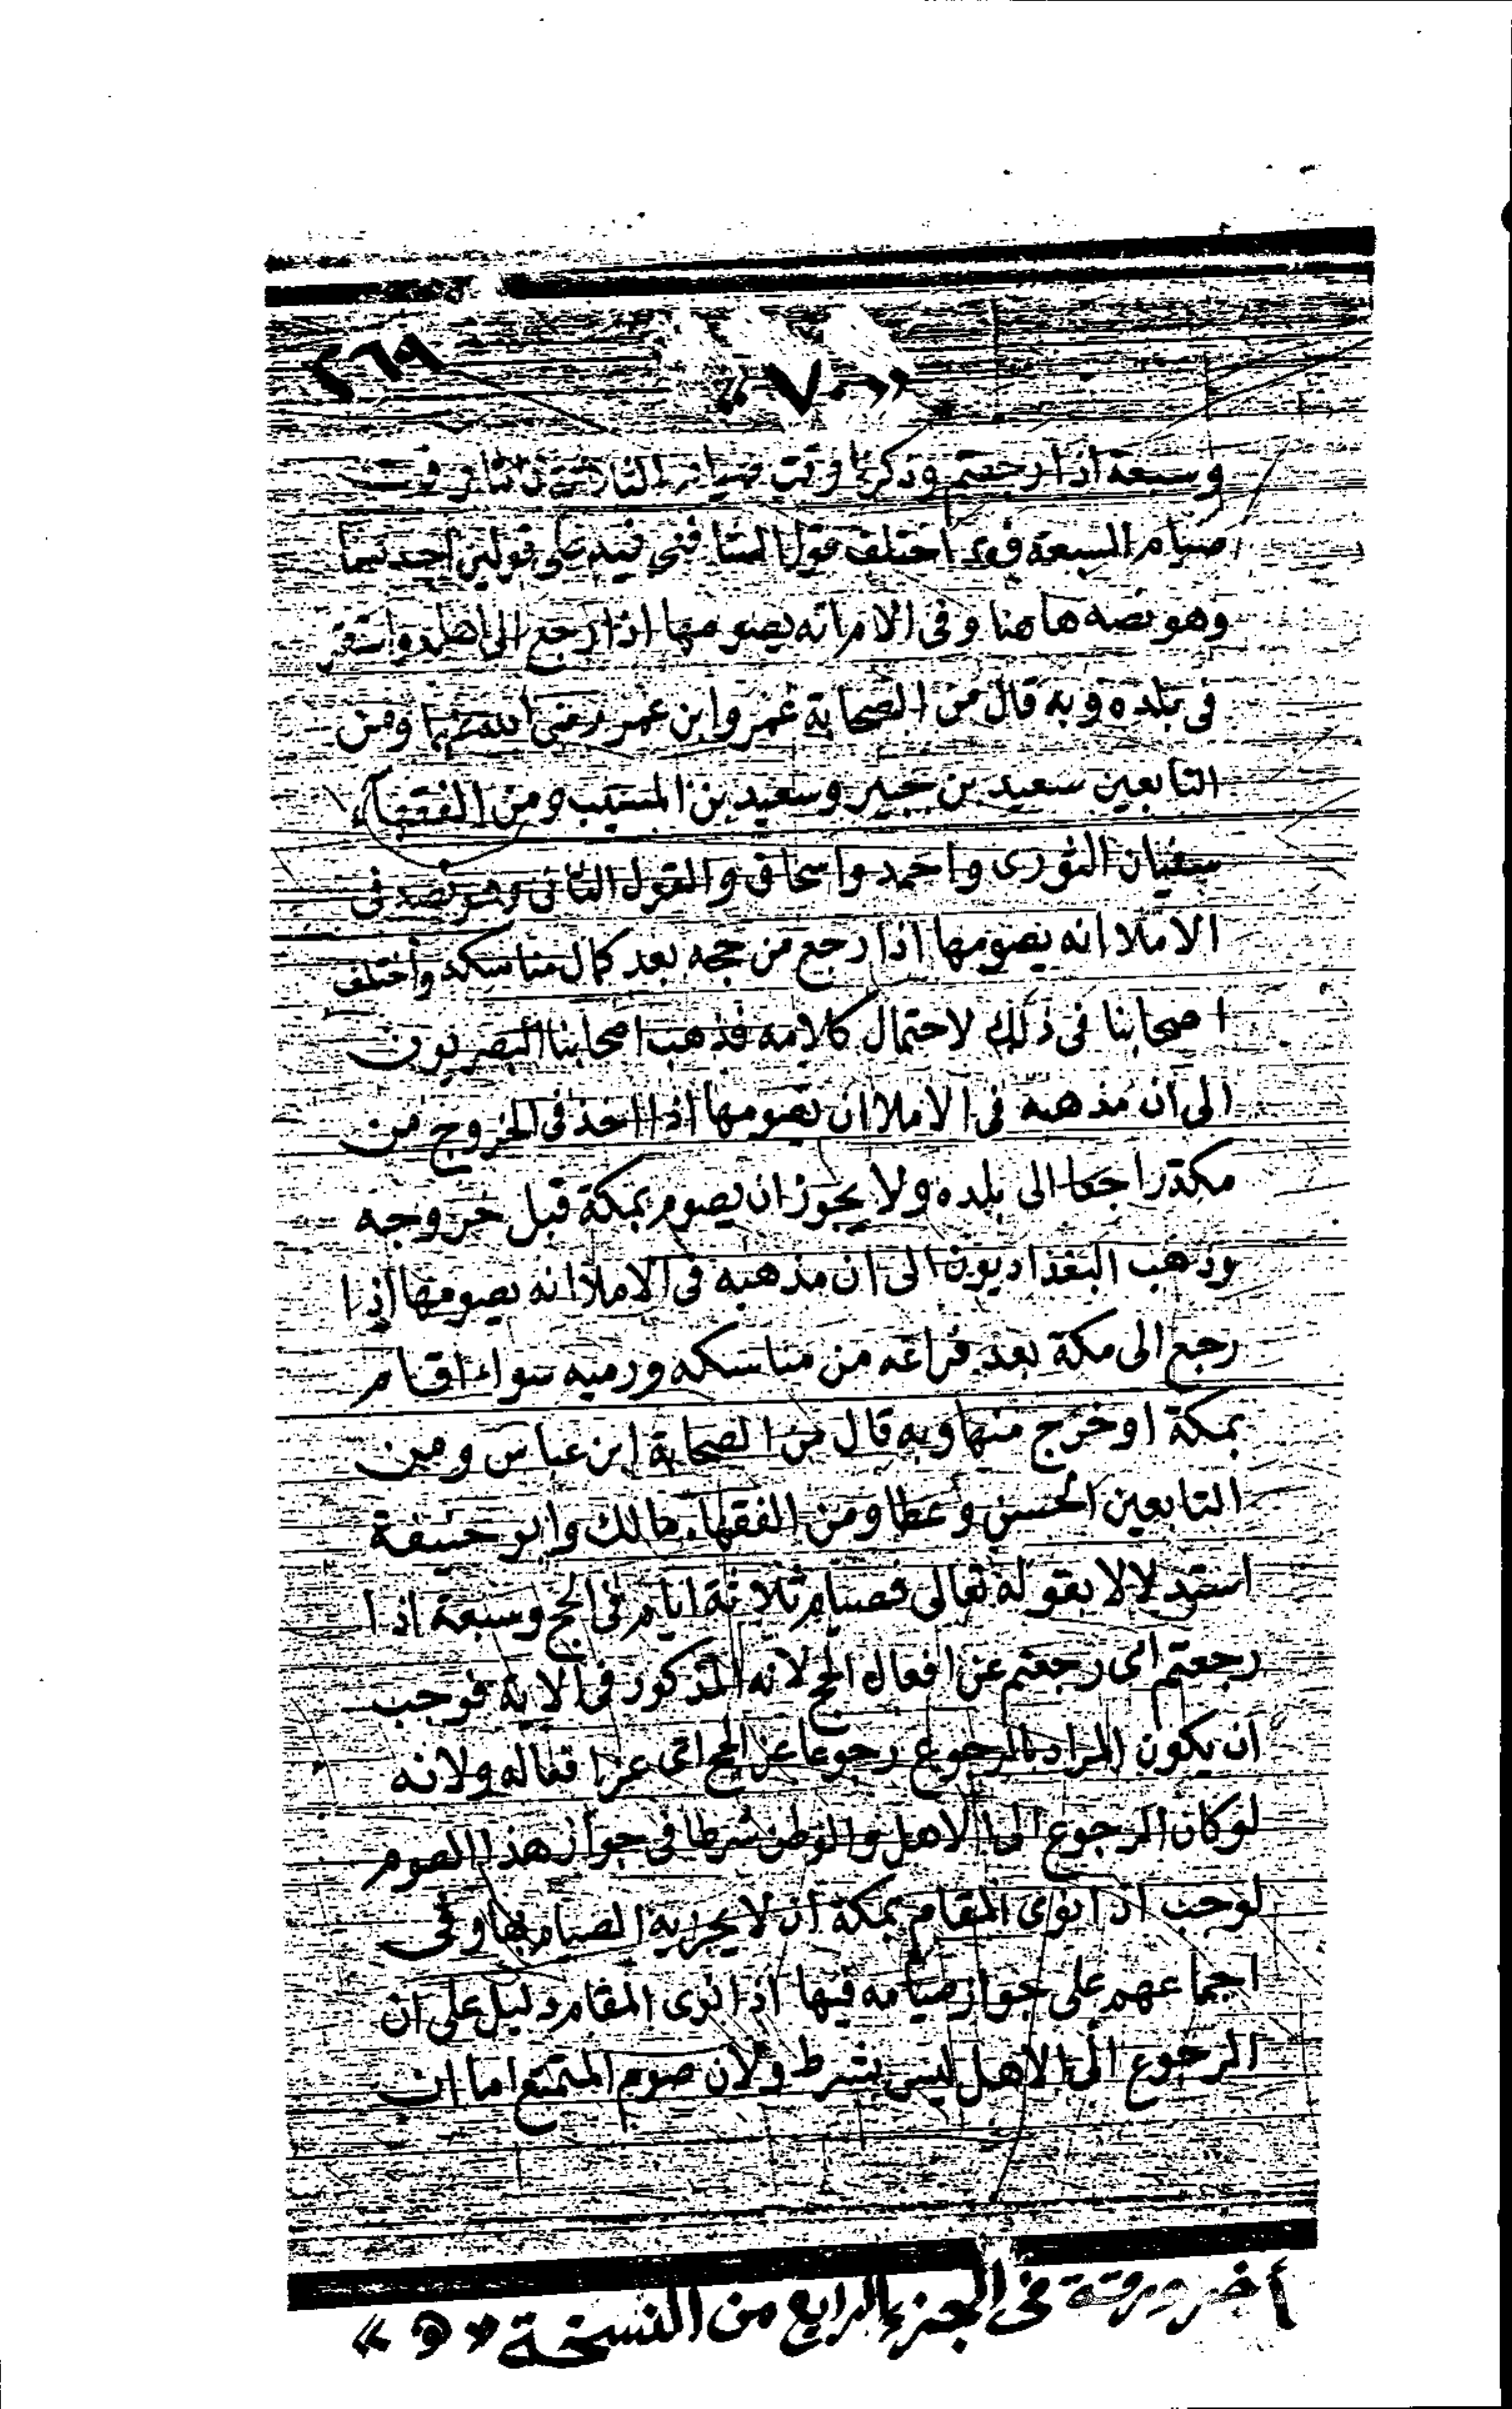 ٢٦٩
« ٧٠ »
وسبعة اذا رجعتم وذكرنا وقت صيام الثلاثة فاما وقت
صيام السبعة فقد اختلف قول الشافعى فيه على قولين احديهما
وهو نصه هاهنا وفى الام انه يصومها اذا رجع الى اهله واستقر
فى بلده وبه قال من الصحابة عمر وابن عمر رضى الله عنهما ومن
التابعين سعيد بن جبير وسعيد بن المسيب ومن الفقهاء
سفيان الثورى واحمد واسحاق والقول الثانى وهو نصه فى
الاملا انه يصومها اذا رجع من حجه بعد كمال مناسكه واختلف
اصحابنا فى ذلك لاحتمال كلامه فذهب اصحابنا البصريون
الى ان مذهبه فى الاملا ان يصومها اذا اخذ فى الخروج من
مكة راجعا الى بلده ولا يجوز ان يصوم بمكة قبل خروجه
وذهب البغداديون الى ان مذهبه فى الاملا انه يصومها اذا
رجع الى مكة بعد فراغه من مناسكه ورميه سواء اقام
بمكة او خرج منها وبه قال من الصحابة ابن عباس ومن
التابعين الحسن وعطا ومن الفقهاء مالك وابو حنيفة
استدلالا بقوله تعالى فصيام ثلاثة ايام فى الحج وسبعة اذا
رجعتم اى رجعتم عن افعال الحج لانه المذكور فى الاية فوجب
ان يكون المراد بالرجوع رجوعا عن الحج اى عن افعاله ولانه
لو كان الرجوع الى الاهل والوطن شرطا فى جواز هذا الصوم
لوجب اذا نوى المقام بمكة ان لا يجزيه الصيام بها وفى
اجماعهم على جواز صيامه فيها اذا نوى المقام دليل على ان
الرجوع الى الاهل ليس بشرط ولان صوم المتمتع اما ان
أخر ورقة فى الجزء الرابع من النسخة « ه »